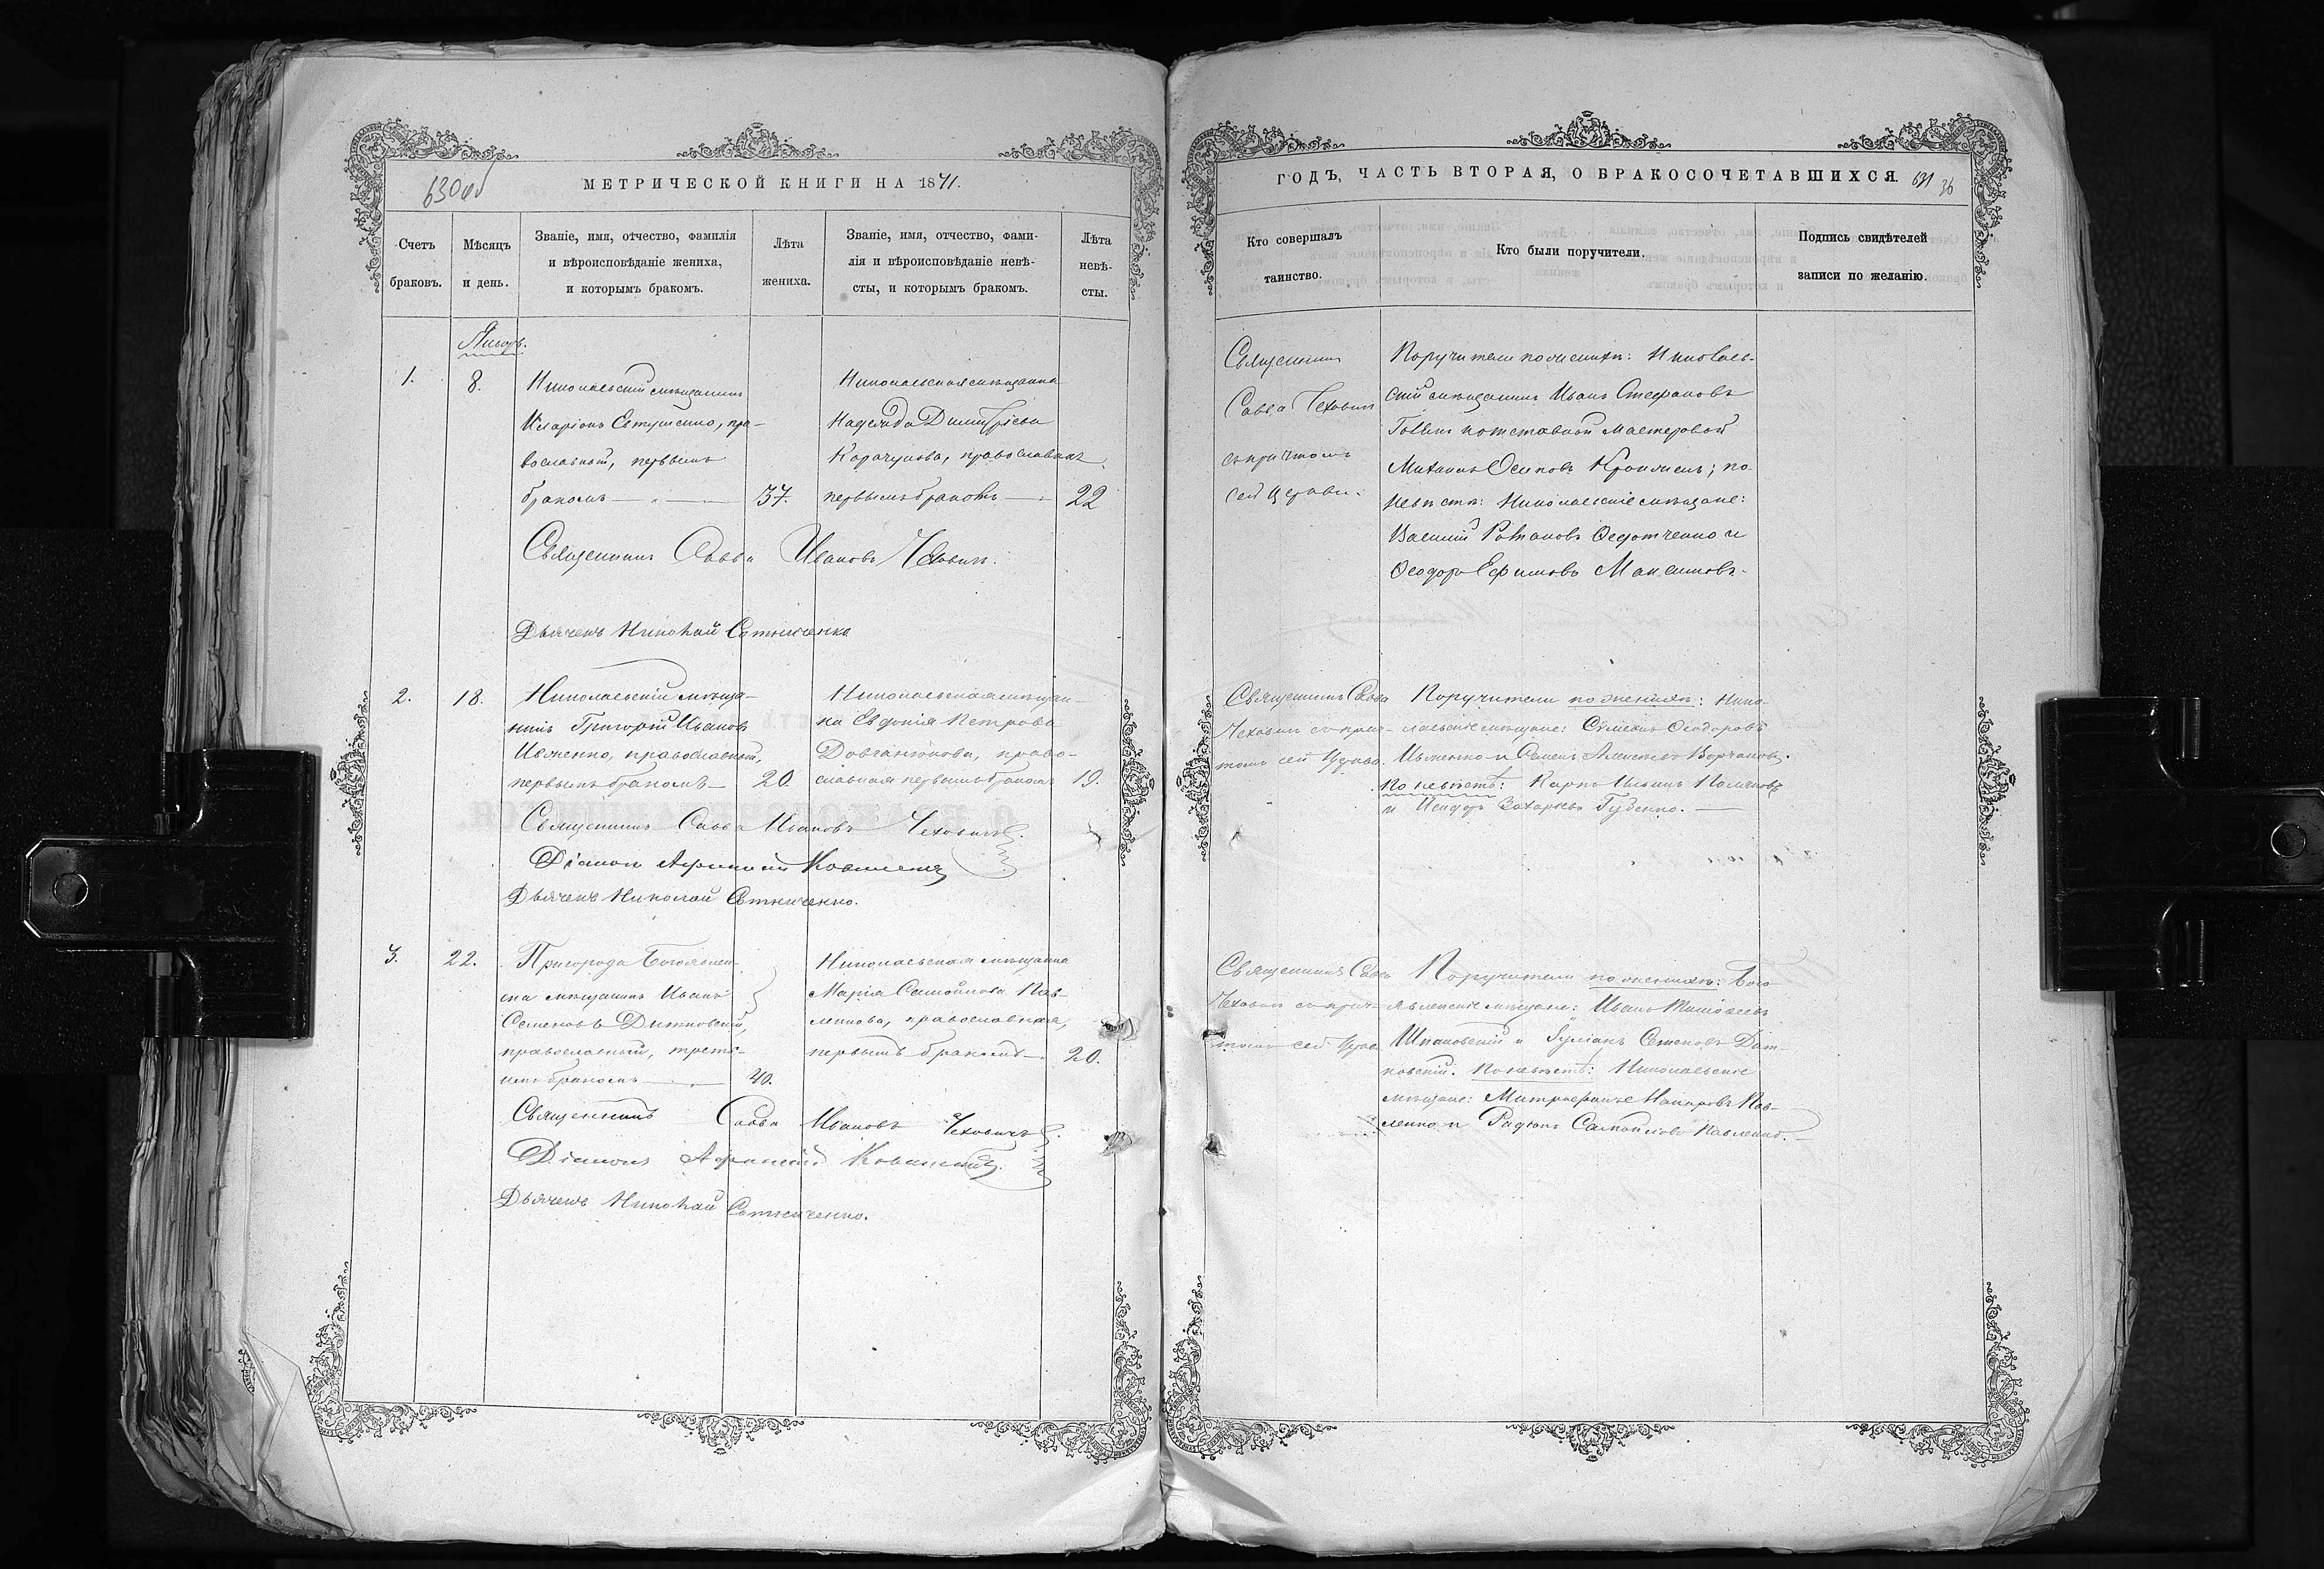 630об
МЕТРИЧЕСКОЙ КНИГИ НА 1871.
Счетъ браковъ.
Мѣсяцъ и день.
Званіе, имя, отчество, фамилія
и вѣроисповѣданіе жениха,
и которымъ бракомъ.
Лѣта жениха.
Званіе, имя, отчество, фами-
лія и вѣроисповѣданіе невѣ-
сты, и которымъ бракомъ.
Лѣта невѣ-
сты.
Январь.
1.
8.
Николаевскій мѣщанинъ
Иларіонъ Евтушенко, пра-
вославный, первымъ
бракомъ
37.
Николаевская мѣщанка
Надежда Димитріева
Карачунова, православная
первымъ бракомъ
22
Священникъ Савва Ивановъ Чеховичъ.
Дьячекъ Николай Сотниченко
2.
18.
Николаевскій мѣща-
нинъ Григорій Ивановъ
Ивженко, православный,
первымъ бракомъ
20.
Николаевская мѣщан-
ка Евдокія Петрова
право-
славная первымъ бракомъ
19.
Священникъ Савва Ивановъ Чеховичъ.
Діаконъ
Дьячекъ Николай Сотниченко.
3.
22.
Пригорода Богоявлен-
ска мѣщанинъ Иванъ
Семеновъ Дитковскій,
православный, треть-
имъ бракомъ
40.
Николаевская мѣщанка
Марія Самойлова Пав-
ленкова, православная,
первымъ бракомъ
20.
Священникъ Савва Ивановъ Чеховичъ.
Діаконъ
Дьячекъ Николай Сотниченко.
ГОДЪ, ЧАСТЬ ВТОРАЯ, О БРАКОСОЧЕТАВШИХСЯ.
631 36
Кто совершалъ
таинство.
Кто были поручители.
Подпись свидѣтелей
записи по желанію.
Священникъ
Савва Чеховичъ
съ причтомъ
сей церкви.
Поручители по женихѣ: Николаев-
скій мѣщанинъ Иванъ Стефановъ
отставной мастеровой
Михаилъ Осиповъ по
невѣстѣ: Николаевскіе мѣщане:
Василій Романовъ Федотченко и
Ѳеодоръ Ефимовъ Максимовъ.
Священникъ Савва
Чеховичъ съ прич-
томъ сей церкви.
Поручители по женихѣ: Нико-
лаевскіе мѣщане: Симеонъ Ѳеодоровъ
Ивженко и Семенъ Алексѣевъ
По невѣстѣ: Карпъ
и Исидоръ Захарьевъ Губенко.
Священникъ Савва
Чеховичъ съ прич-
томъ сей церкви
Поручители по женихѣ: Бого-
явленскіе мѣщане: Иванъ Тимоѳеевъ
Шпаковскій и Семеновъ Дит-
ковскій. По невѣстѣ: Николаевскіе
мѣщане: Митрофанъ Макаровъ Пав-
ленко и Радіонъ Самойловъ Павленко.